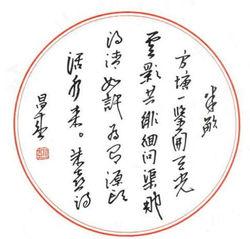 半畝
方塘一鑒開天光
雲影共徘徊問渠那
得清如許為有源頭
活水來。朱熹詩